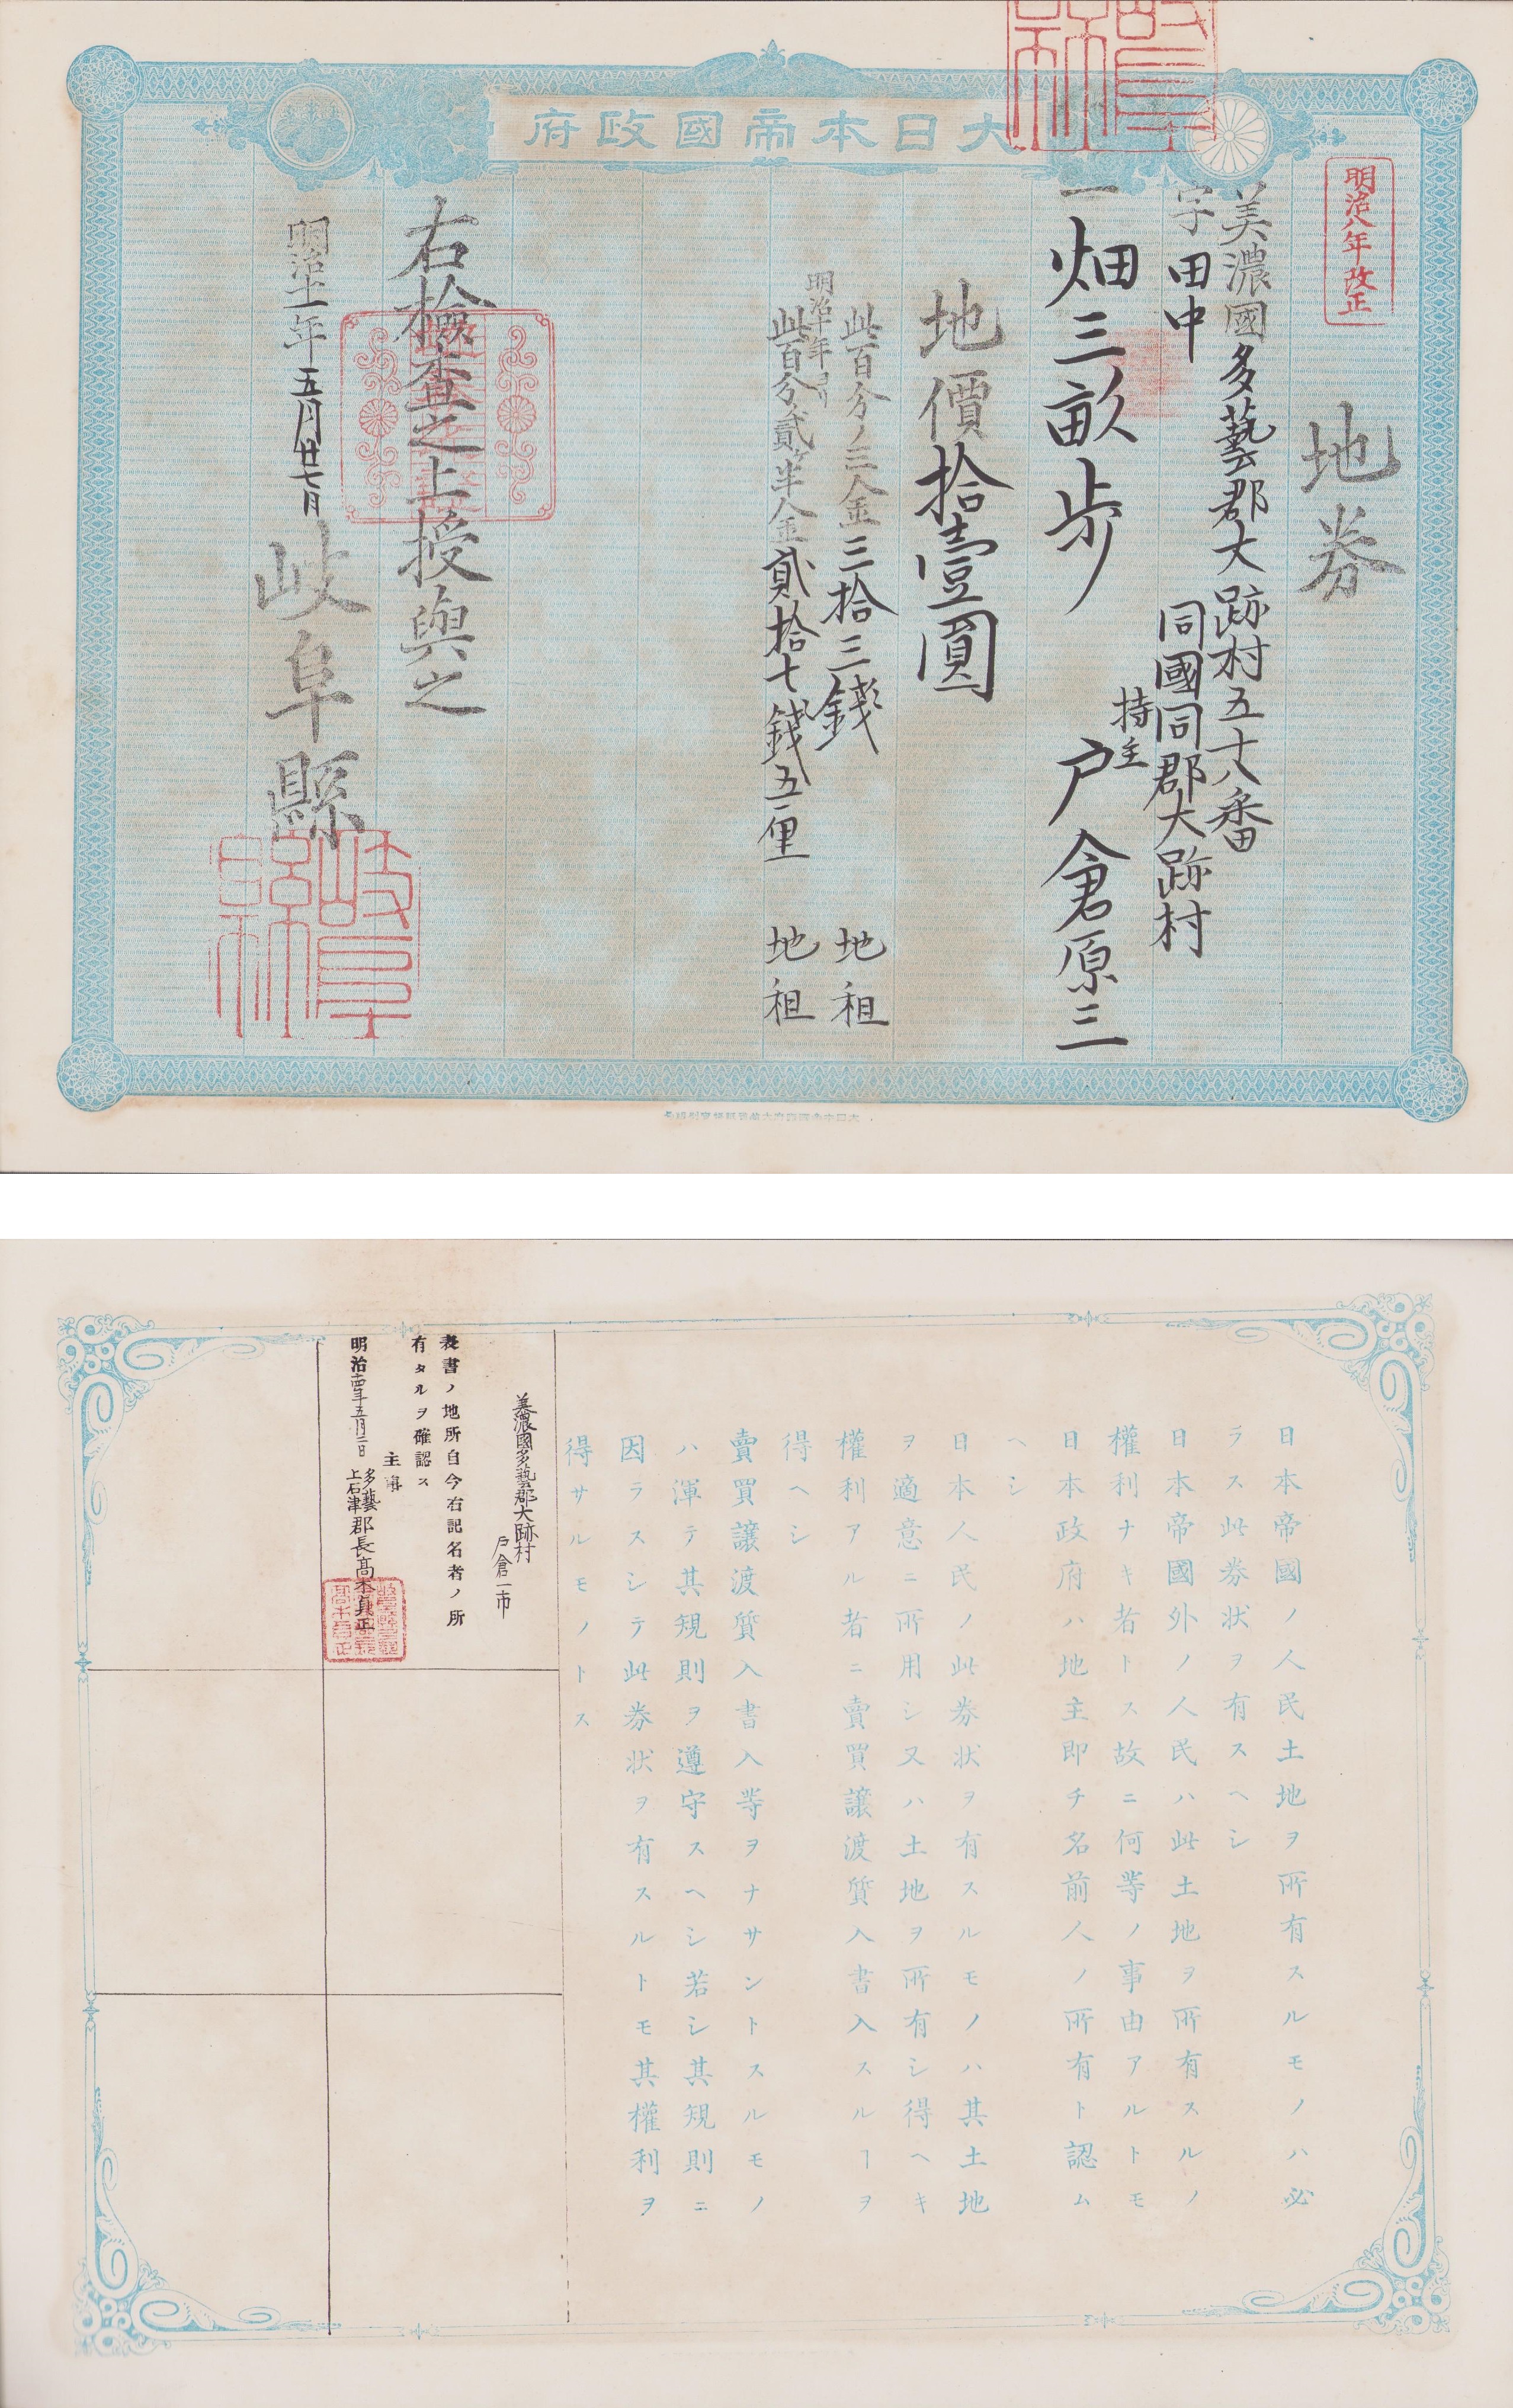 大日本帝國政府
明治八年改正
地券
美濃國多藝郡大跡村五十八番
字田中
同國同郡大跡村
一畑三畝歩
持主
戸倉原三
地價拾壹圓
此百分ノ三金三拾三錢
地租
明治十年ヨリ
此百分貳ヶ半金貳拾七錢五厘
地租
右檢査之上授與之
明治十一年五月廿七日
岐阜縣
岐阜縣
日本帝國ノ人民土地ヲ所有スルモノハ必
ラス此券状ヲ有スヘシ
日本帝國外ノ人民ハ此土地ヲ所有スルノ
權利ナキ者トス故ニ何等ノ事由アルトモ
日本政府ハ地主即チ名前人ノ所有ト認ム
ヘシ
日本人民ノ此券状ヲ有スルモノハ其土地
ヲ適意ニ所用シ又ハ土地ヲ所有シ得ヘキ
權利アル者ニ賣買讓渡質入書入スルヿヲ
得ヘシ
賣買讓渡質入書入等ヲナサントスルモノ
ハ渾テ其規則ヲ遵守スヘシ若シ其規則ニ
因ラスシテ此券状ヲ有スルトモ其權利ヲ
得サルモノトス
美濃國多藝郡大跡村
戸倉一市
表書ノ地所自今右記名者ノ所
有タルヲ確認ス
主事
明治十四年五月二日
多藝
上石津
郡長高木貞正